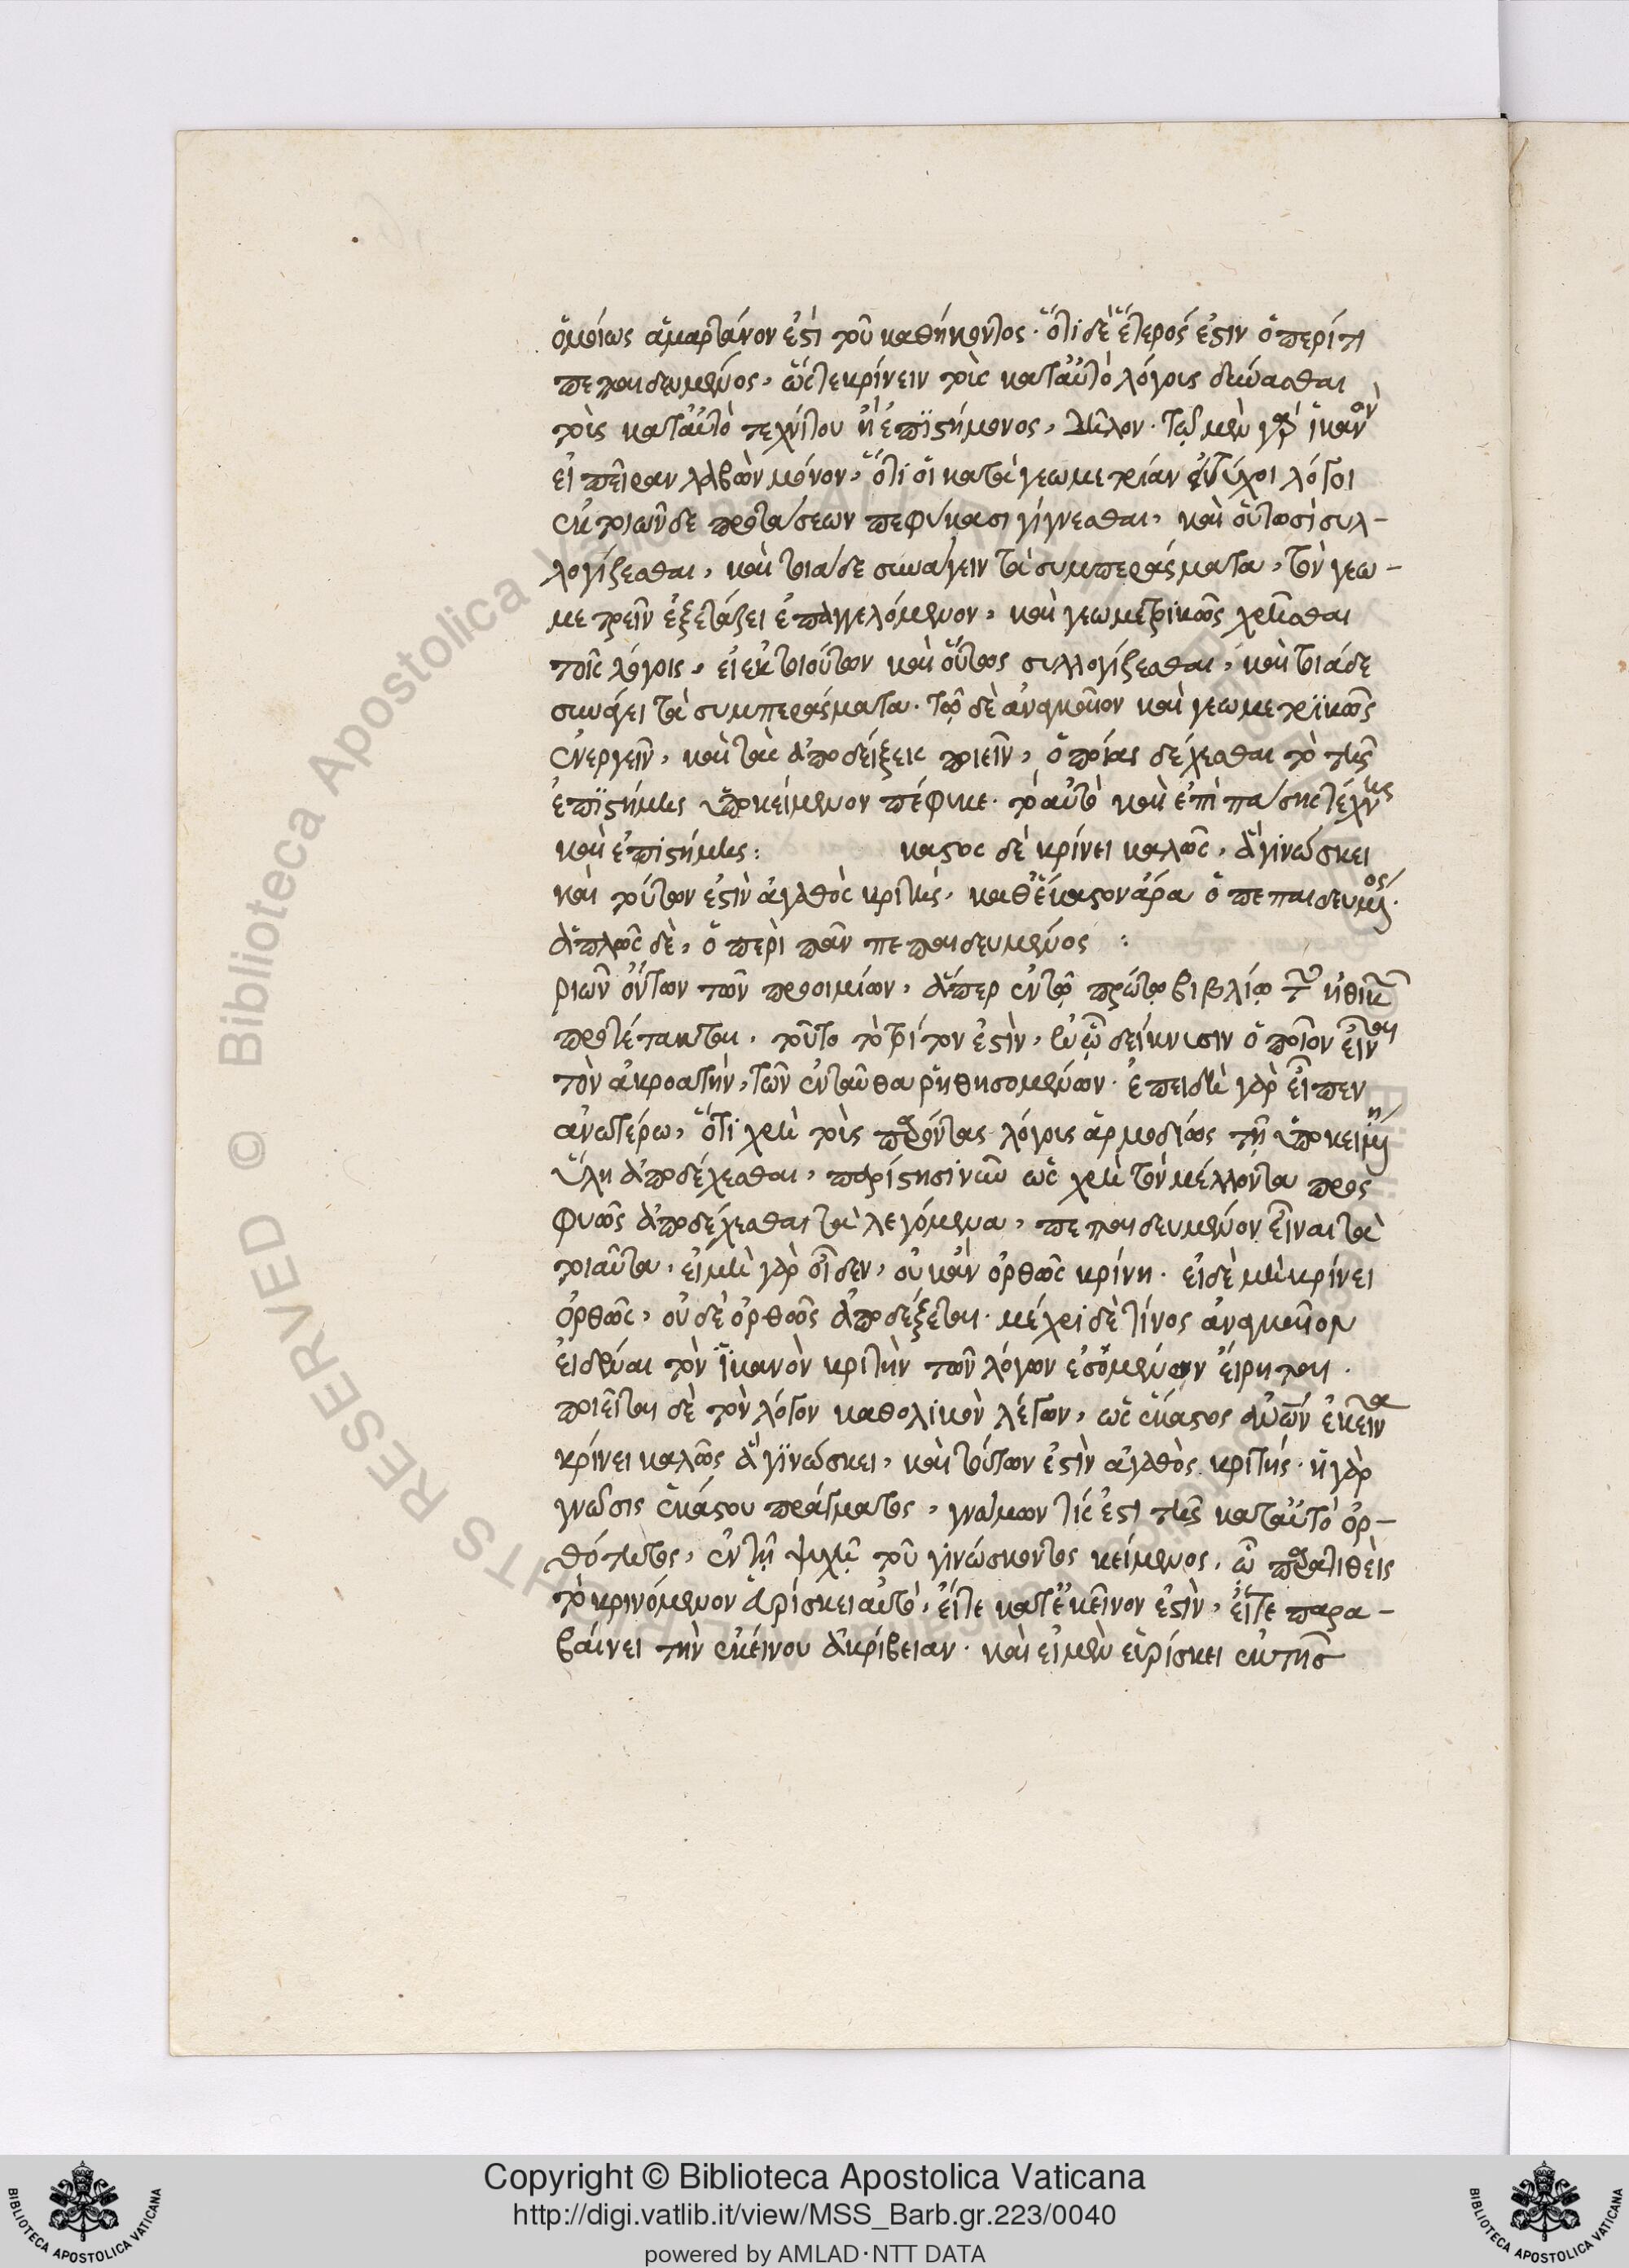 ὁμοίως ἁμαρτάνον ἐστὶ τοῦ καθήκοντος· ὅτι δὲ ἕτερός ἐστιν ὁ περί τι
πεπαιδευμένος, ὥστε κρίνειν τοὺς κατ' αὐτὸ λόγους δύνασθαι
τοῦ κατ' αὐτὸ τεχνίτου ἢ ἐπιστήμονος, δῆλον· τῷ μὲν γὰρ ἱκανὸν
εἰ πεῖραν λαβὼν μόνον, ὅτι οἱ κατὰ γεωμετρίαν εἰ τύχοι λόγοι
ἐκ τοιῶνδε προτάσεων πεφύκασι γίγνεσθαι, καὶ οὑτωσὶ συλ-
λογίζεσθαι, καὶ τοιάδε συνάγειν τὰ συμπεράσματα, τὸν γεω-
μετρεῖν ἐξετάζει ἐπαγγελόμενον, καὶ γεωμετρικῶς χρῆσθαι
τοῖς λόγοις, εἰ ἐκ τοιούτων καὶ οὕτως συλλογίζεσθαι, καὶ τοιάδε
συνάγει τὰ συμπεράσματα· τῷ δὲ ἀναγκαῖον καὶ γεωμετρικῶς
ἐνεργεῖν, καὶ τὰς ἀποδείξεις ποιεῖν, ὁποίας δέχεσθαι τὸ τῆς
ἐπιστήμης ὑποκείμενον πέφυκε· τὸ αὐτὸ καὶ ἐπὶ πάσης τέχνης
καὶ ἐπιστήμης: καστος δὲ κρίνει καλῶς, ἃ γινώσκει
καὶ τούτων ἐστὶν ἀγαθὸς κριτής· καθ' ἕκαστον ἄρα ὁ πεπαιδευμένος·
ἁπλῶς δὲ, ὁ περὶ πᾶν πεπαιδευμένος :
ριῶν ὄντων τῶν προοιμίων, ἅπερ ἐν τῷ πρώτῳ βιβλίῳ τῶν ἠθικῶν
προτέτακται, τοῦτο τὸ τρίτον ἐστὶν, ἐν ᾧ δείκνυσιν ὁποῖον εἶναι
τὸν ἀκροατὴν, τῶν ἐνταῦθα ῥηθησομένων· ἐπειδὴ γὰρ εἶπεν
ἀνωτέρω, ὅτι χρὴ τοὺς παρόντας λόγους ἁρμοδίως τῇ ὑποκειμένῃ
ὕλῃ ἀποδέχεσθαι, παρίστησι νῦν ὡς χρὴ τὸν μέλλοντα προσ
φυῶς ἀποδέχεσθαι τὰ λεγόμενα, πεπαιδευμένον εἶναι τὰ
τοιαῦτα, εἰ μὴ γὰρ οἶδεν, οὐκ ἂν ὀρθῶς κρίνῃ· εἰ δὲ μὴ κρίνει
ὀρθῶς, οὐδὲ ὀρθῶς ἀποδέξεται· μέχρι δὲ τίνος ἀναγκαῖον
εἰδέναι τὸν ἱκανὸν κριτὴν τῶν λόγων ἐσόμενον εἴρηται·
ποιεῖται δὲ τὸν λόγον καθολικὸν λέγων, ὡς ἕκαστος αὐτῶν ἐκεῖνα
κρίνει καλῶς ἃ γινώσκει, καὶ τούτων ἐστὶν ἀγαθὸς κριτής· ἡ γὰρ
γνῶσις ἑκάστου πράγματος, γνώμων τίς ἐστι τῆς κατ' αὐτὸ ὀρ-
θότητος, ἐν τῇ ψυχῇ τοῦ γινώσκοντος κείμενος, ᾧ παρατιθεὶς
τὸ κρινόμενον εὑρίσκει αὐτὸ, εἴτε κατ' ἐκεῖνον ἐστὶν, εἴτε παρα-
βαίνει τὴν ἐκείνου ἀκρίβειαν· καὶ εἰ μὲν εὑρίσκει ἐκ τῆς
Copyright © Biblioteca Apostolica Vaticana
http://digi.vatlib.it/view/MSS_Barb.gr.223/0040
powered by AMLAD·NTT DATA